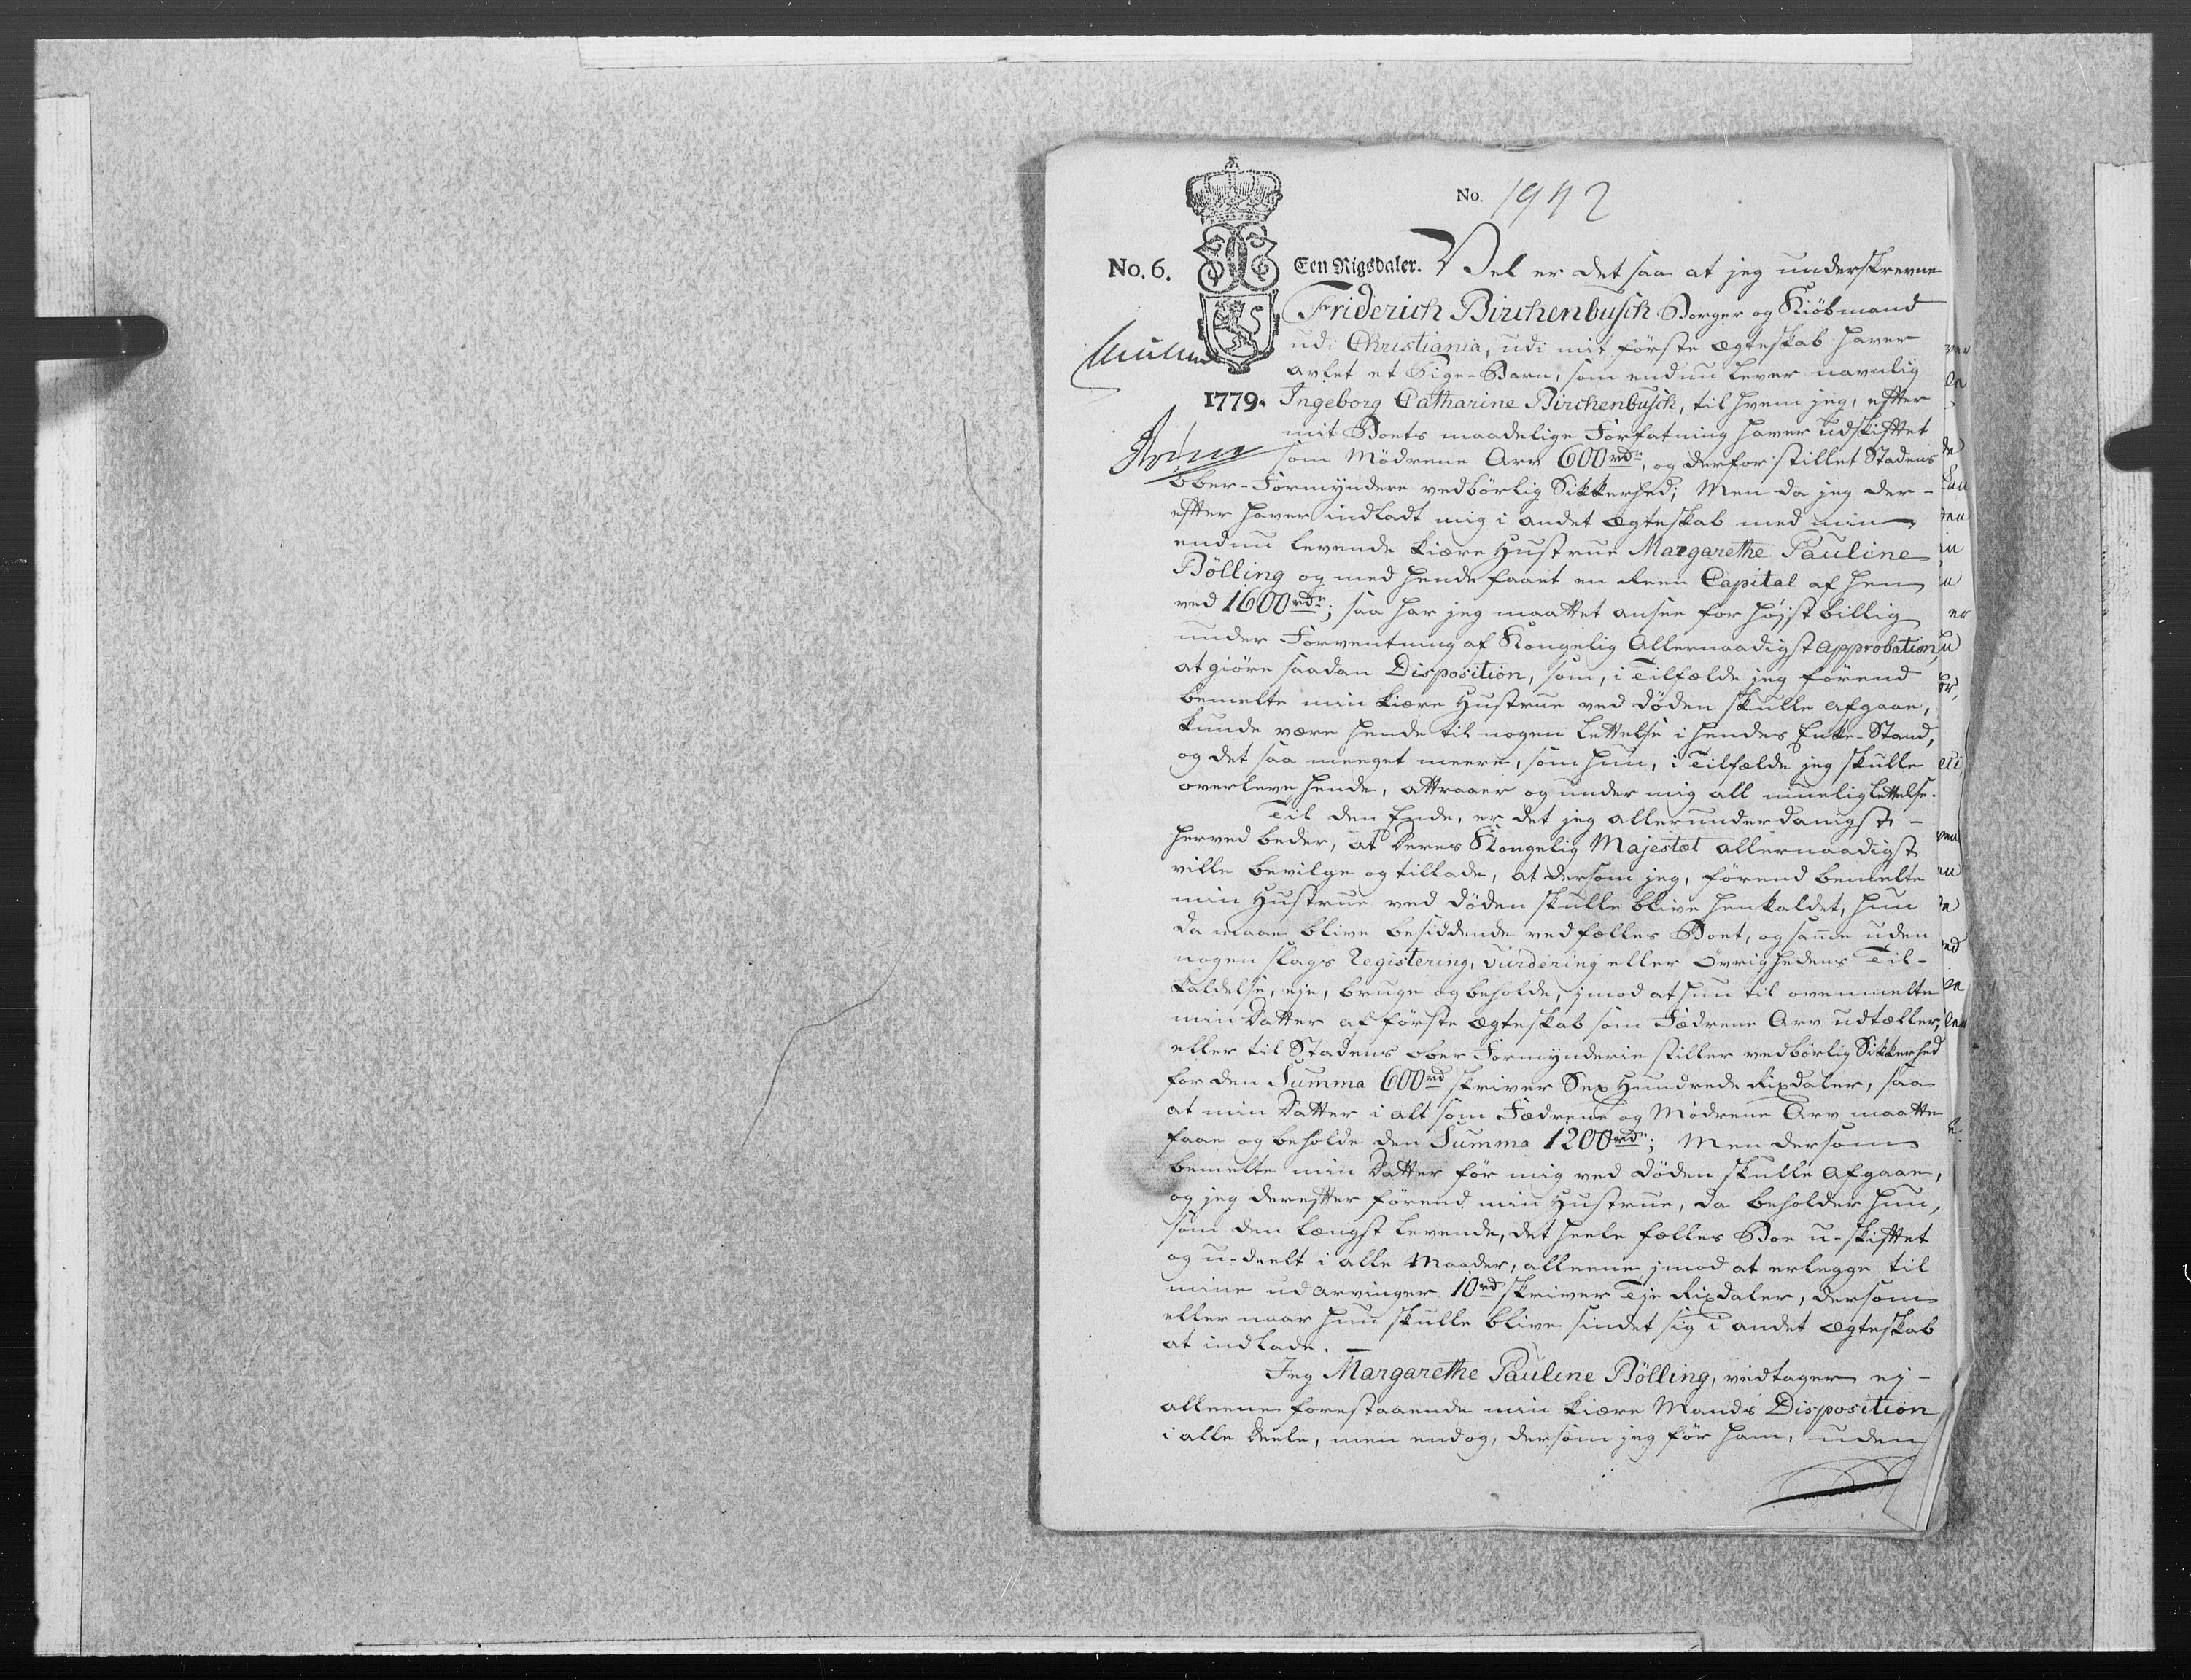 No. 1942
No. 6. Een Rigsdaler. Vel er det saa at jeg underskrevne
Friderich Birchenbusch Borger og Kiöbmand
udi Christiania, udi mit förste Ægteskab haver
avlet et Pige-Barn, som endnu lever navnlig
1779. Ingeborg Catharine Birchenbusch, til hvem jeg, efter
mit Boets maadelige Forfatning haver udskiftet
som Mödrene Arv 600 rdr, og derfor stillet Stadens
Ober-Formyndere vedbörlig Sikkerhed; Men da jeg der-
efter haver indladt mig i andet Ægteskab med min
endnu levende kiære Hustrue Margarethe Pauline
Bölling og med hende faaet en Reen Capital af hen
ved 1600 rdr; saa har jeg maattet ansee for höjst billig
under Forventning af Kongelig Allernaadigst Approbation,
at giöre saadan Disposition, som, i Tilfælde jeg förend
bemelte min kiære Hustrue ved Döden skulle afgaae,
kunde være hende til nogen Lettelse i hendes Enke-Stand,
og det saa meeget meere, som hun, i Tilfælde jeg skulle
overleve hende, attraaer og under mig all muelig Lettelse.
Til den Ende, er det jeg allerunderdanigst-
herved beder, at Deres Kongelig Majestæt allernaadigst
ville bevilge og tillade, at dersom jeg, förend bemelte
min Hustrue ved Döden skulle blive henkaldet, hun
da maae blive besiddende ved fælles Boet, og samme uden
nogen slags Registering, Vurdering eller Övrighedens Til-
kaldelse, eje, bruge og beholde, jmod at hun til ovenmelte
min Datter af förste Ægteskab som Fædrene Arv udtæller,
eller til Stadens Ober Formynderie stiller vedbörlig Sikkerhed
for den Summa 600 rd skriver Sex Hundrede Rixdaler, saa
at min Datter i alt som Fædrene og Mödrene Arv maatte
faae og beholde den Summa 1200 rdr; Men dersom
bemelte min Datter för mig ved Döden skulle afgaae,
og jeg derefter förend min Hustrue, da beholder hun,
som den længst levende, det heele fælles Boe u-skiftet
og u-deelt i alle Maader, alleene jmod at erlegge til
mine udarvinger 10 rd skriver Tje Rixdaler, dersom
eller naar hun skulle blive sindet sig i andet Ægteskab
at indlade.
Jeg Margarethe Pauline Bölling, vedtager ej-
alleene forestaaende min kiære Mands Disposition
i alle Deele, men endog, dersom jeg för ham, uden